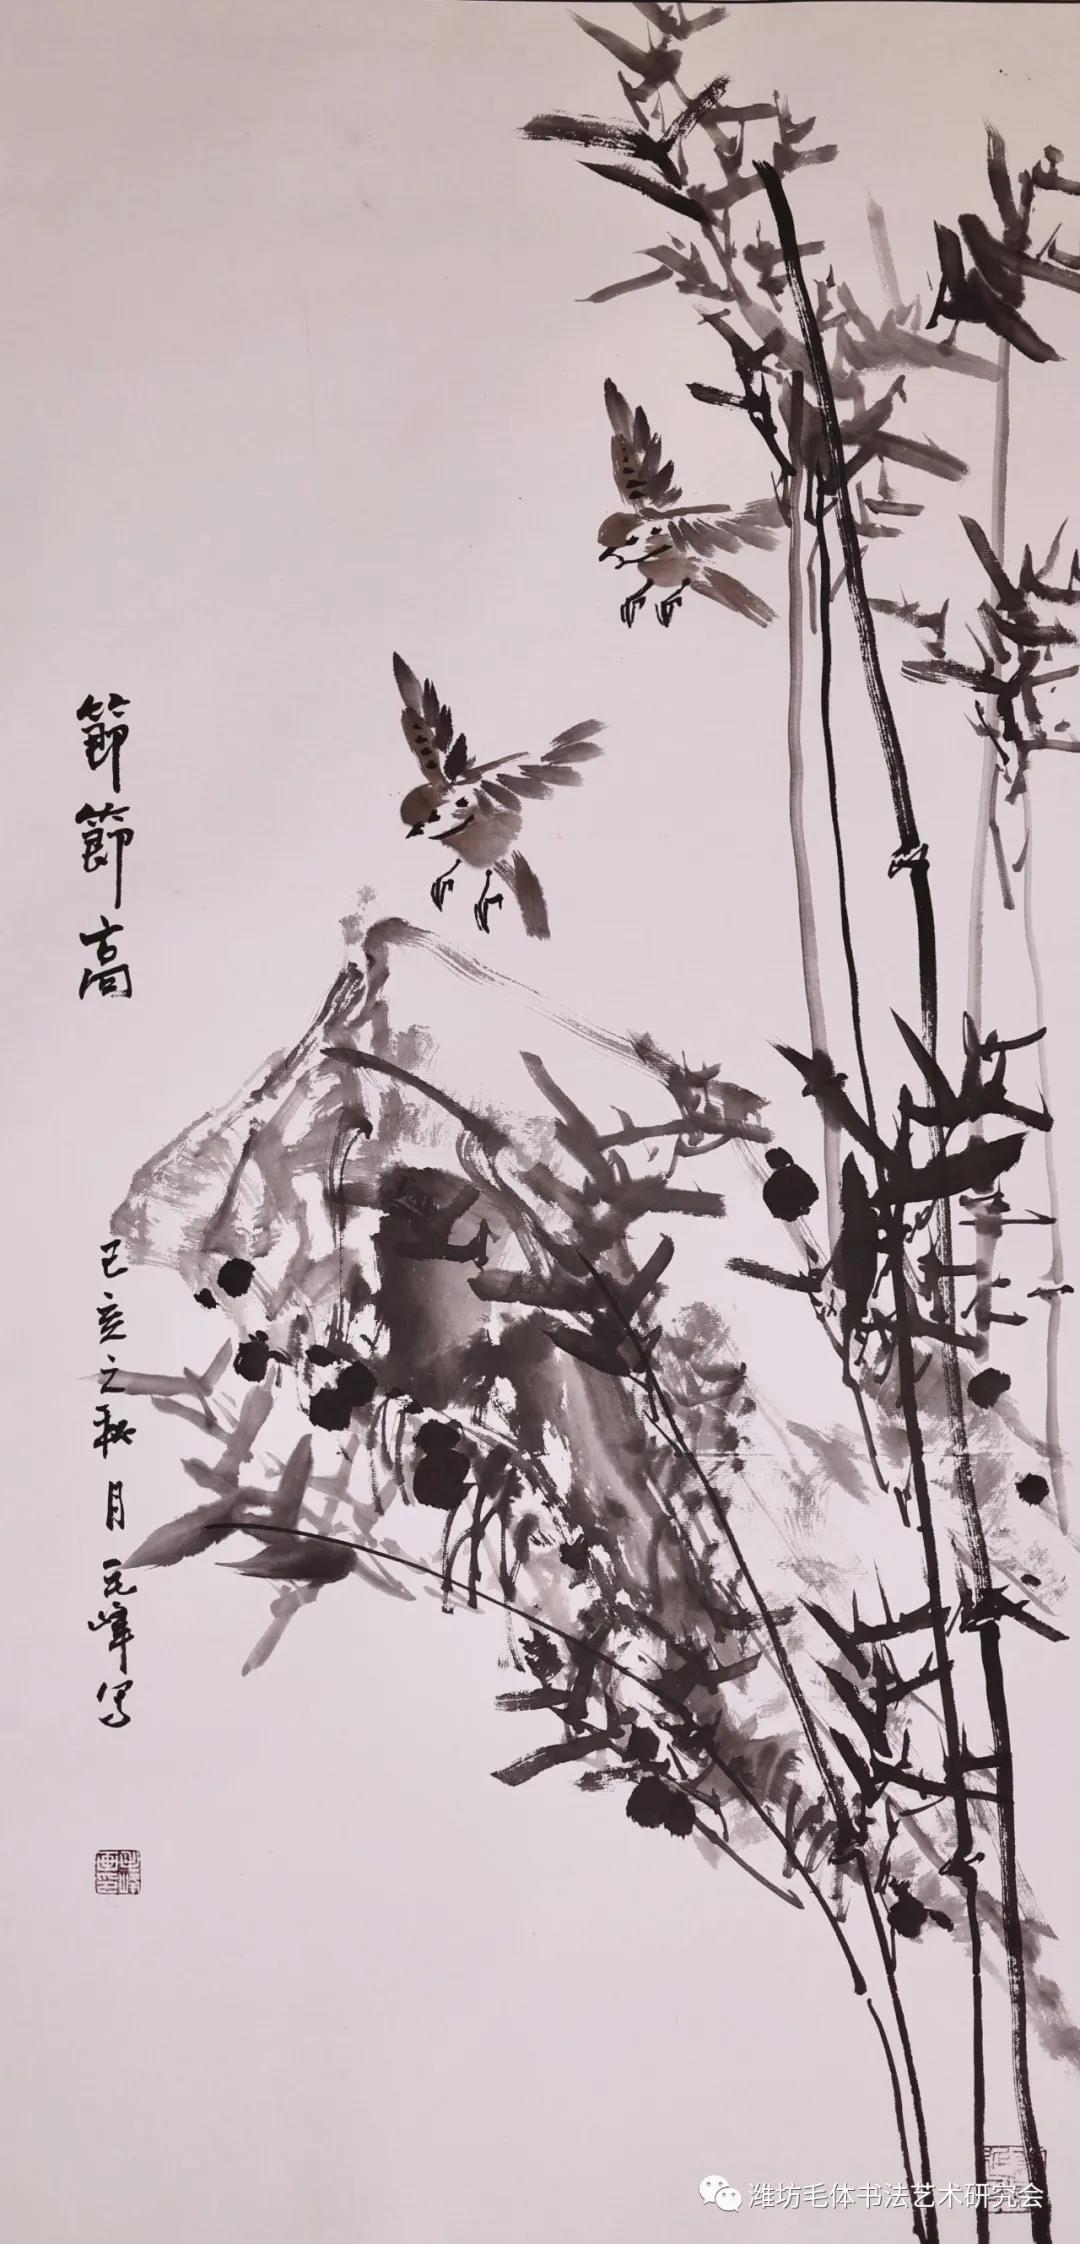 節節高
己亥之秋月元峰写
潍坊毛体书法艺术研究会